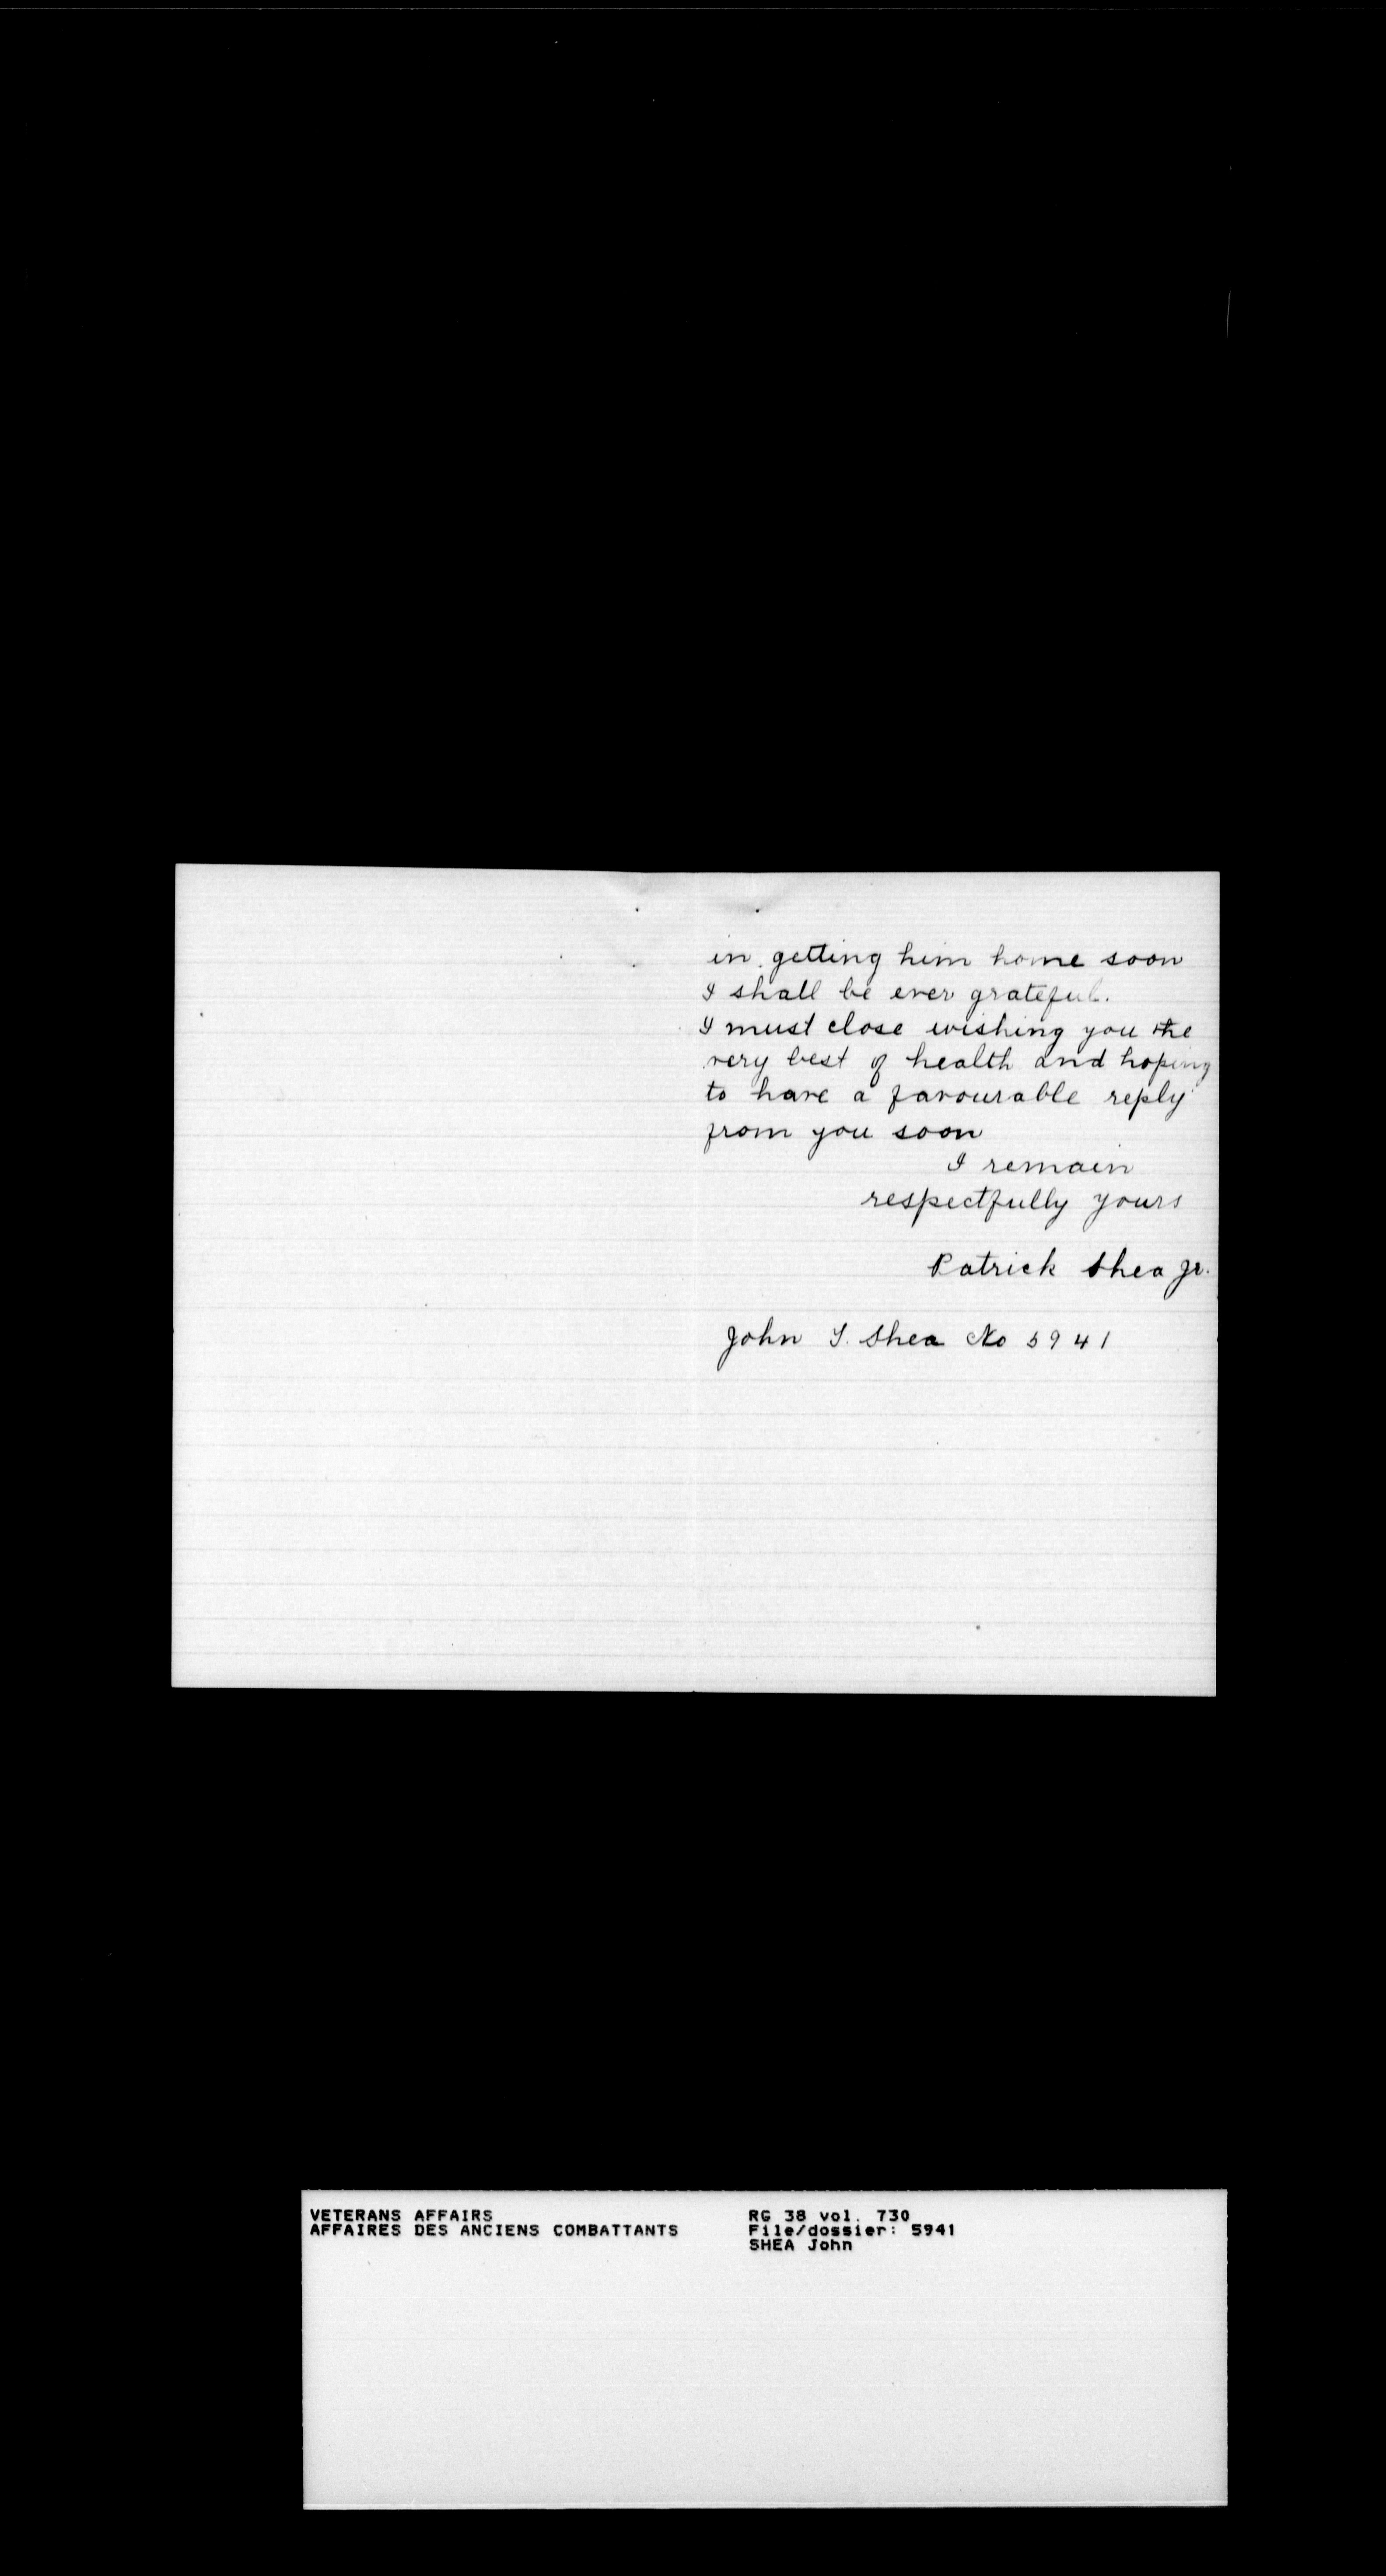 in getting him home soon
I shall be ever grateful.
I must close wishing you the
very best of health and hoping
to have a favourable reply
from you soon
I remain
respectfully yours
Patrick Shea Jr.
John T. Shea No 5941
VETERANS AFFAIRS
AFFAIRES DES ANCIENS COMBATTANTS
RG 38 vol. 730
File/dossier: 5941
SHEA John